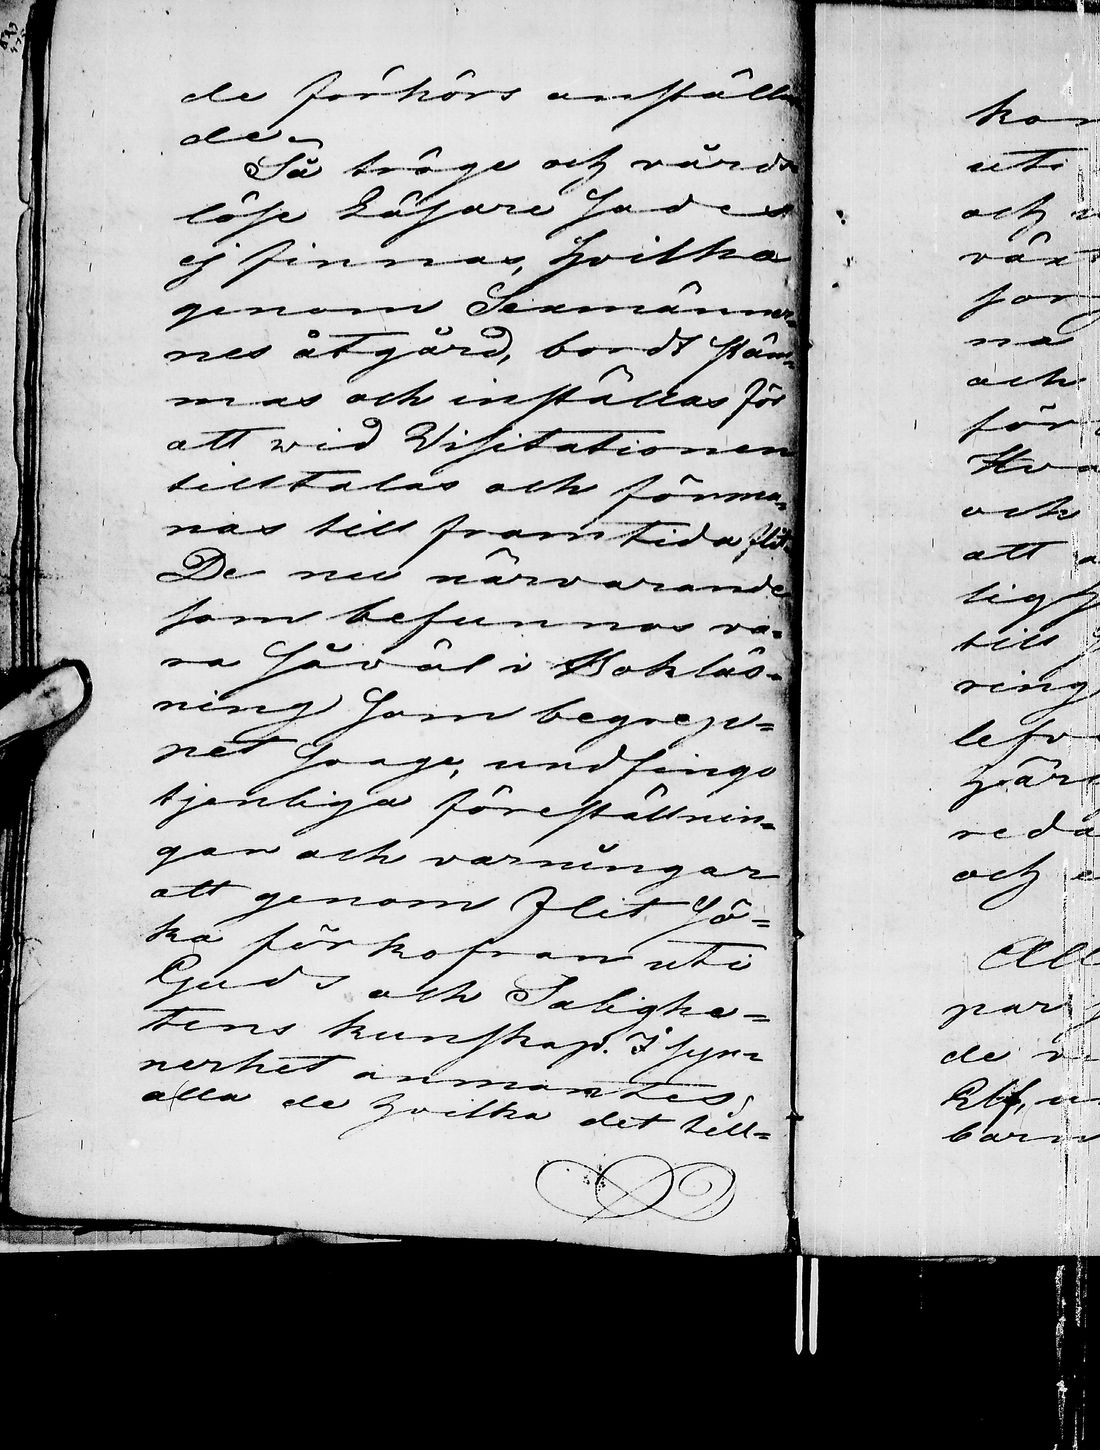 de förhörs anställ-
de.
Så tröge och vårds-
löse Läsare sades
ej finnas, hvilka
genom Sexmänner-
nes åtgärd, bordt stäm-
mas och inställas för
att wid Visitationen
tilltalas och förma-
nas till framtida flit.
De nu närvarande
som befunnos va-
ra såväl i Bokläs-
ning som begrepp-
net svage, undfingo
tjenliga föreställnin-
gar och varningar
att genom flit sö-
ka förkofran uti
Guds och Salighe-
tens kunskap. I syn-
nerhet anmantes
alla de hvilka det till-
kon
uti
och
växt
för
na
och
för
Hva
och
att
lig
till
ring
lefv
här
reda
och
All
par
de
Elf,
barn